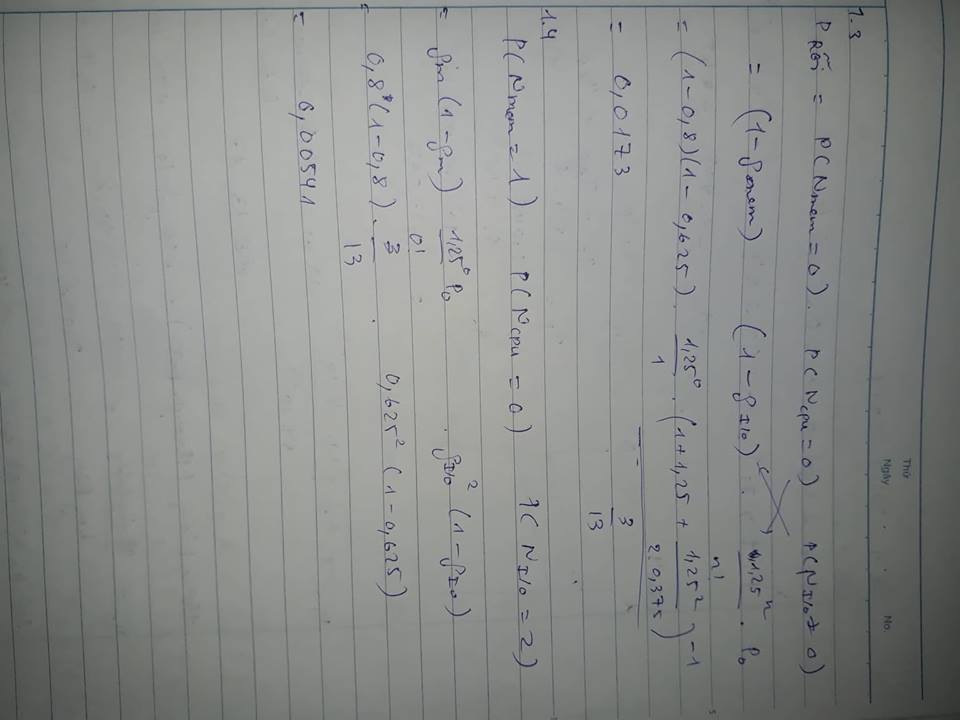 Thứ
Ngày . . No.
1.3
P_Rỗi = P(N_mem = 0). P(N_cpu = 0) P(N_I/o = 0)
= (1-ρ_mem) (1-ρ_I/o) . 1,25^n/n! . P_0
= (1-0,8)(1-0,625) . 1,25^0/1 . (1+1,25 + 1,25^2/2.0,375)^-1
= 0,0173 3/13
1.4
P(N_mem = 1) P(N_cpu = 0) P(N_I/o = 2)
= ρ_m (1-ρ_m) 1,25^0/0! P_0 . ρ_I/o^2 (1-ρ_I/o)
= 0,8 (1-0,8) . 3/13 . 0,625^2 (1-0,625)
= 0,00541